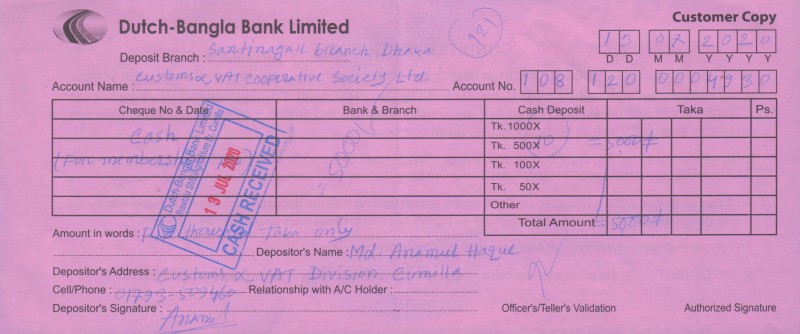 Customer Copy
Dutch-Bangla Bank Limited
(121)
13 07 2020
D D M M Y Y Y Y
Deposit Branch : Santinagar branch, Dhaka
Account Name : Customs & VAT Cooperative Society Ltd. Account No. 108 120 0004930
Cheque No & Date Bank & Branch Cash Deposit Taka Ps.
Cash
Tk. 1000X
Tk. 500X = 5000/
Tk. 100X
Tk. 50X
Other
Total Amount = 5000/
Dutch-Bangla Bank Limited
13 JUL 2020
CASH RECEIVED
Amount in words : Taka only
Depositor's Name : Md. Anamul Haque
Depositor's Address : Customs & VAT Division, Cumilla
Cell/Phone : 01793-509460 Relationship with A/C Holder :
Depositor's Signature : Anamul
Officer's/Teller's Validation Authorized Signature